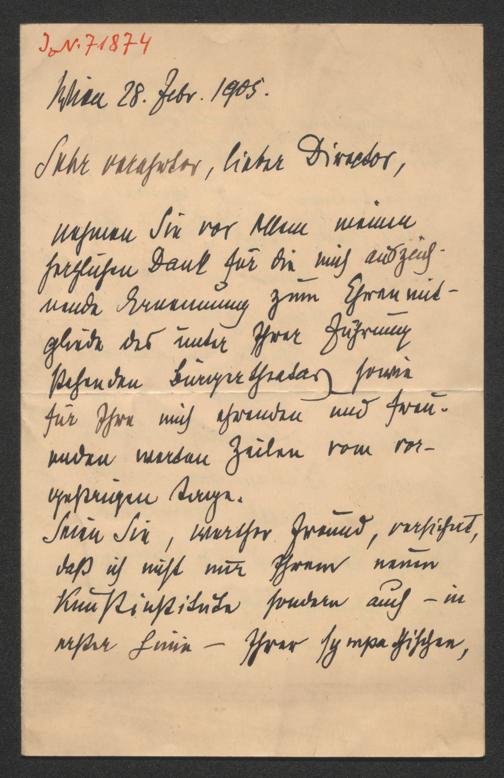 J.N. 71874
Wien 28. Febr. 1905.
Sehr verehrter, lieber Director,
nehmen Sie vor Allem meinen
herzlichen Dank für die mich auszeich-
nende Ernennung zum Ehrenmit-
gliede des unter Ihrer Führung
stehenden Bürgertheaters sowie
für Ihre mich ehrenden und freu-
enden werten Zeilen vom vor-
gestrigen Tage.
Seien Sie, werther Freund, versichert,
daß ich nicht nur Ihrem neuen
Kunstinstitute sondern auch – in
erster Linie – Ihrer sympathischen,